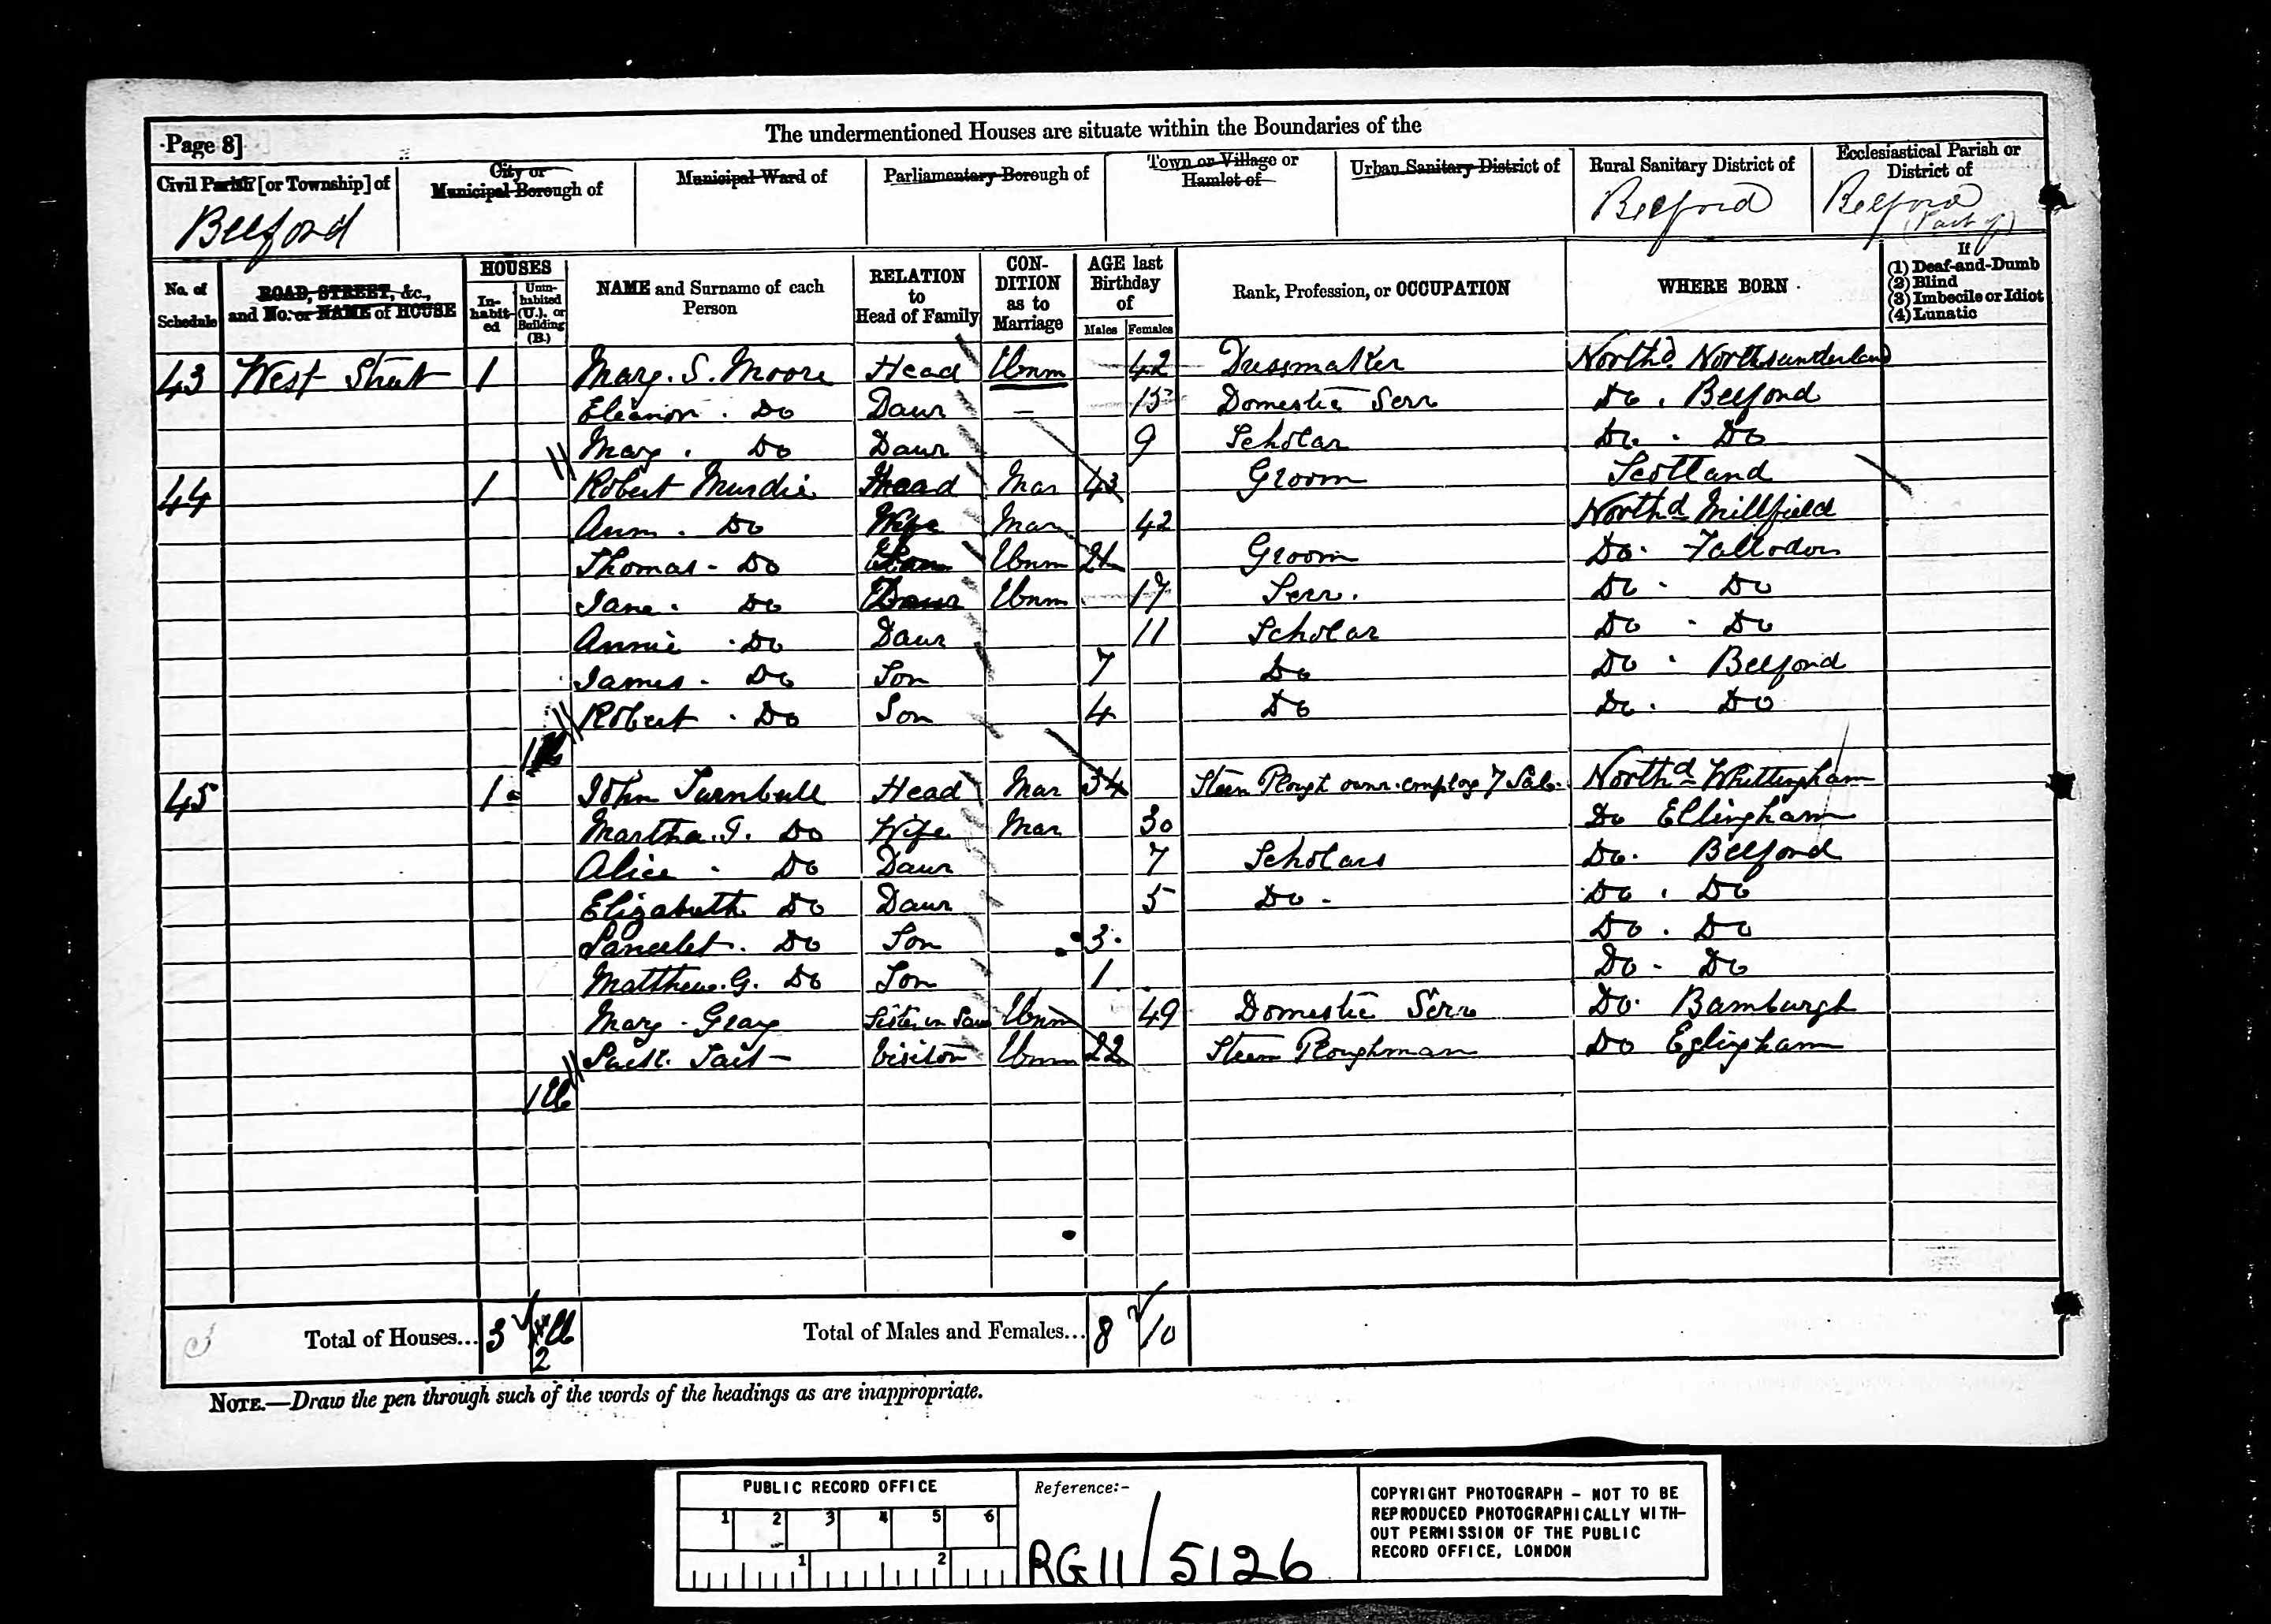 Page 8]
The undermentioned Houses are situate within the Boundaries of the
Civil Parish [or Township] of
City or Municipal Borough of
Municipal Ward of
Parliamentary Borough of
Town or Village or Hamlet of
Urban Sanitary District of
Rural Sanitary District of
Ecclesiastical Parish or District of
Belford
Belford
Belford (Part of)
No. of Schedule
ROAD, STREET, &c., and No. or NAME of HOUSE
HOUSES
In-habit-ed
Unin-habited (U.), or Building (B.)
NAME and Surname of each Person
RELATION to Head of Family
CON-DITION as to Marriage
AGE last Birthday of
Males
Females
Rank, Profession, or OCCUPATION
WHERE BORN
If
(1) Deaf-and-Dumb
(2) Blind
(3) Imbecile or Idiot
(4) Lunatic
43 West Street 1 Mary. S. Moore Head Unm 42 Dressmaker North'd. Northsunderland
Eleanor. Do Daur — 15 Domestic Serv Do. Belford
Mary. Do Daur 9 Scholar Do. Do
44 1 Robert Murdie Head Mar 43 Groom Scotland
Ann. Do Wife Mar 42 North'd Millfield
Thomas - Do Unm 21 Groom Do. Fallodon
Jane. Do Daur Unm 17 Serv. Do. Do
Annie. Do Daur 11 Scholar Do. Do
James. Do Son 7 Do Do. Belford
Robert. Do Son 4 Do Do. Do
1U
45 1 John Turnbull Head Mar 34 Steam Plough ownr. employ 7 Lab. North'd Whittingham
Martha. T. Do Wife Mar 30 Do Ellingham
Alice. Do Daur 7 Scholars Do. Belford
Elizabeth Do Daur 5 Do. Do. Do
Lancelot. Do Son 3. Do. Do
Matthew. G. Do Son 1 Do. Do
Mary. Gray Sister in Law Unm 49 Domestic Serv Do. Bamburgh
Tait - Visitor Unm 22 Steam Ploughman Do Eglingham
1U
Total of Houses... 3 U 2
Total of Males and Females... 8 10
NOTE.—Draw the pen through such of the words of the headings as are inappropriate.
PUBLIC RECORD OFFICE
1 2 3 4 5 6
1 2
Reference:-
RG 11/5126
COPYRIGHT PHOTOGRAPH - NOT TO BE
REPRODUCED PHOTOGRAPHICALLY WITH-
OUT PERMISSION OF THE PUBLIC
RECORD OFFICE, LONDON